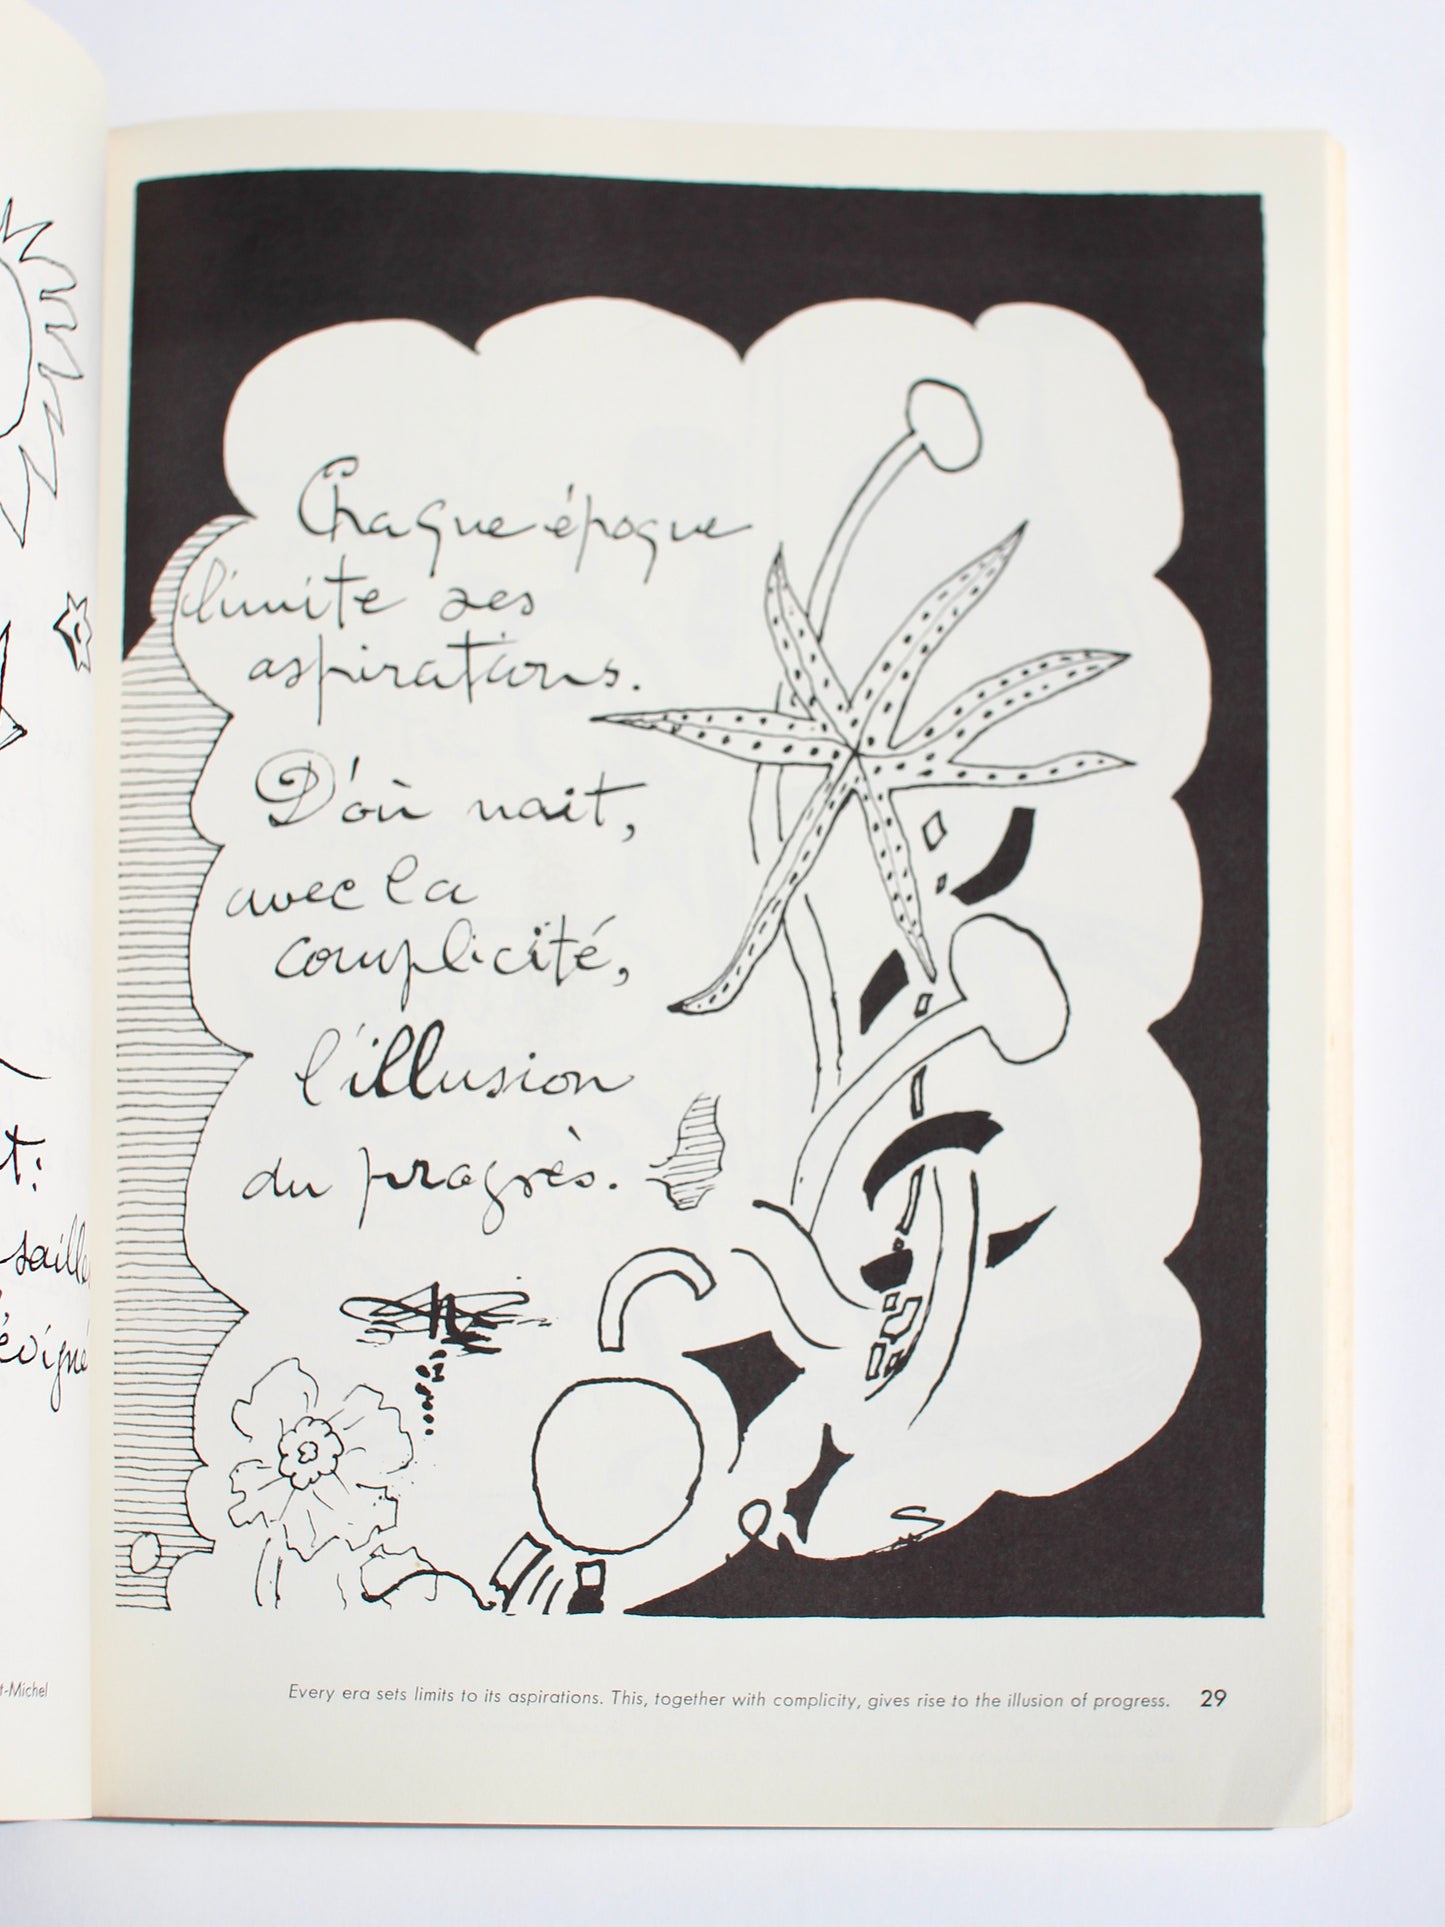 t:
saille
évigné
t-Michel
Chaque époque
limite ses
aspirations.
D'où nait,
avec la
complicité,
l'illusion
du progrès.
Every era sets limits to its aspirations. This, together with complicity, gives rise to the illusion of progress. 29